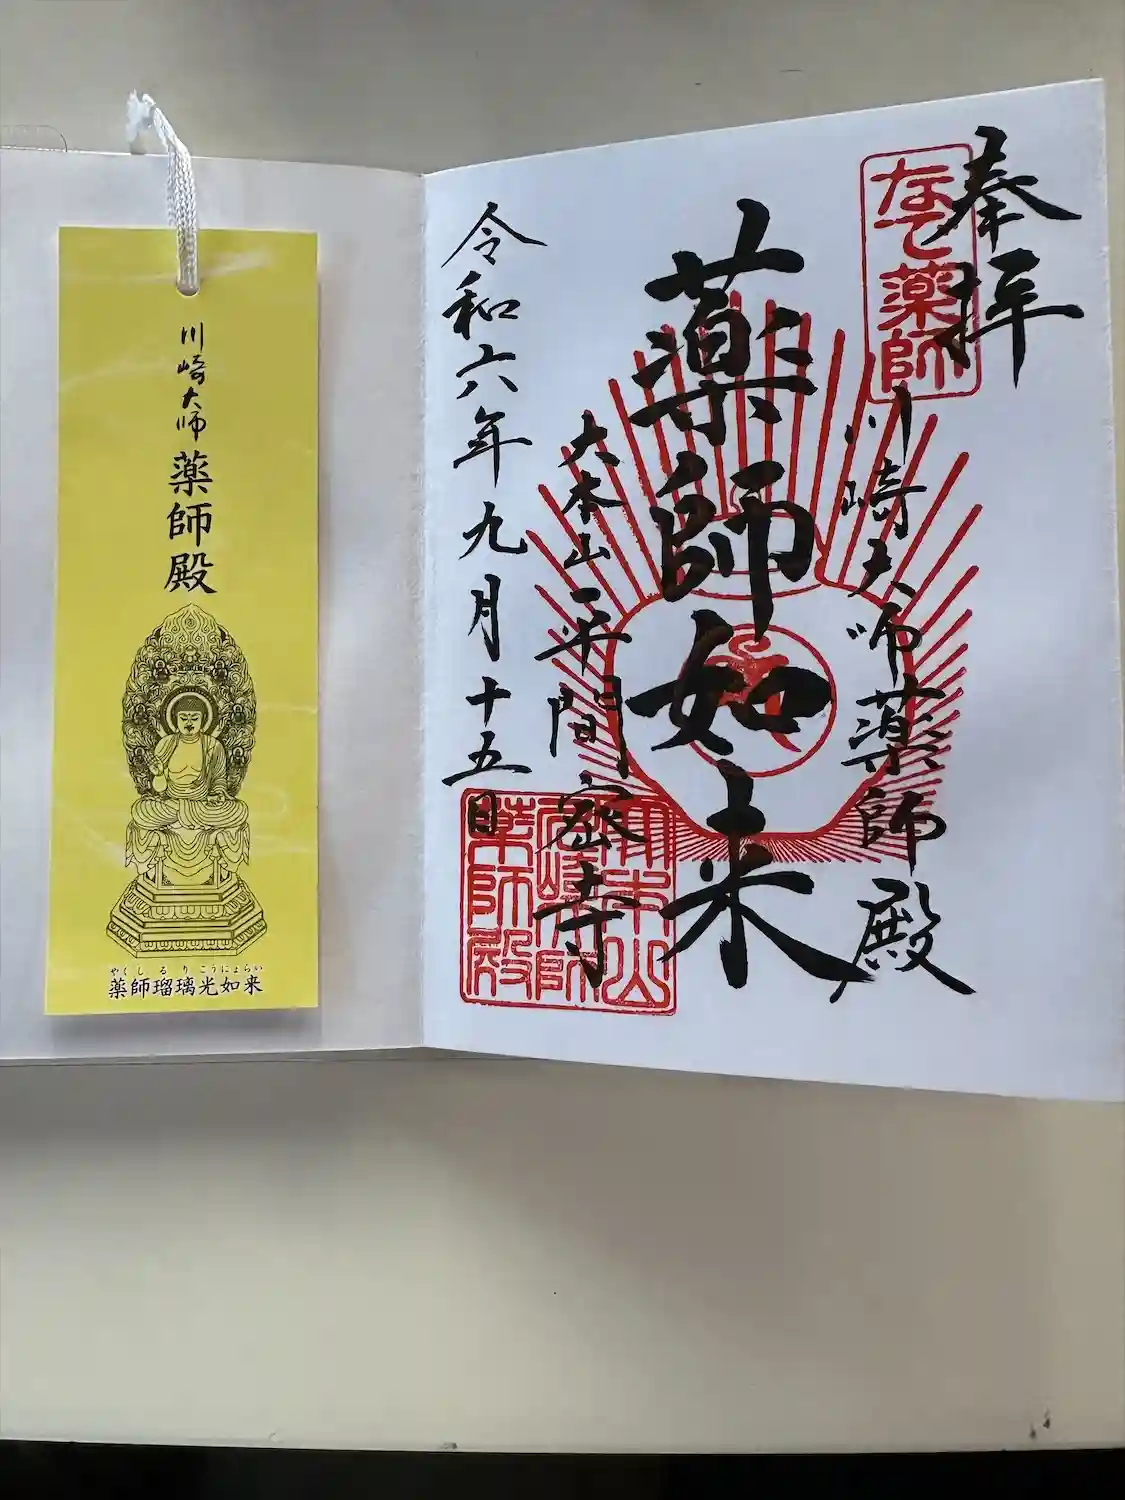 奉拝
なで薬師
川崎大師薬師殿
薬師如来
大本山平間密寺
令和六年九月十五日
大本山
川崎大師
薬師殿
川崎大師
薬師殿
やくしるりこうにょらい
薬師瑠璃光如来